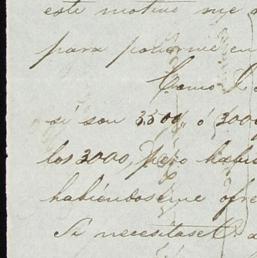 este motivo me
para ponerme en
Como
si son 3500, ó 3000
los 3000, pero
habiéndoseme ofre
Si necesitase